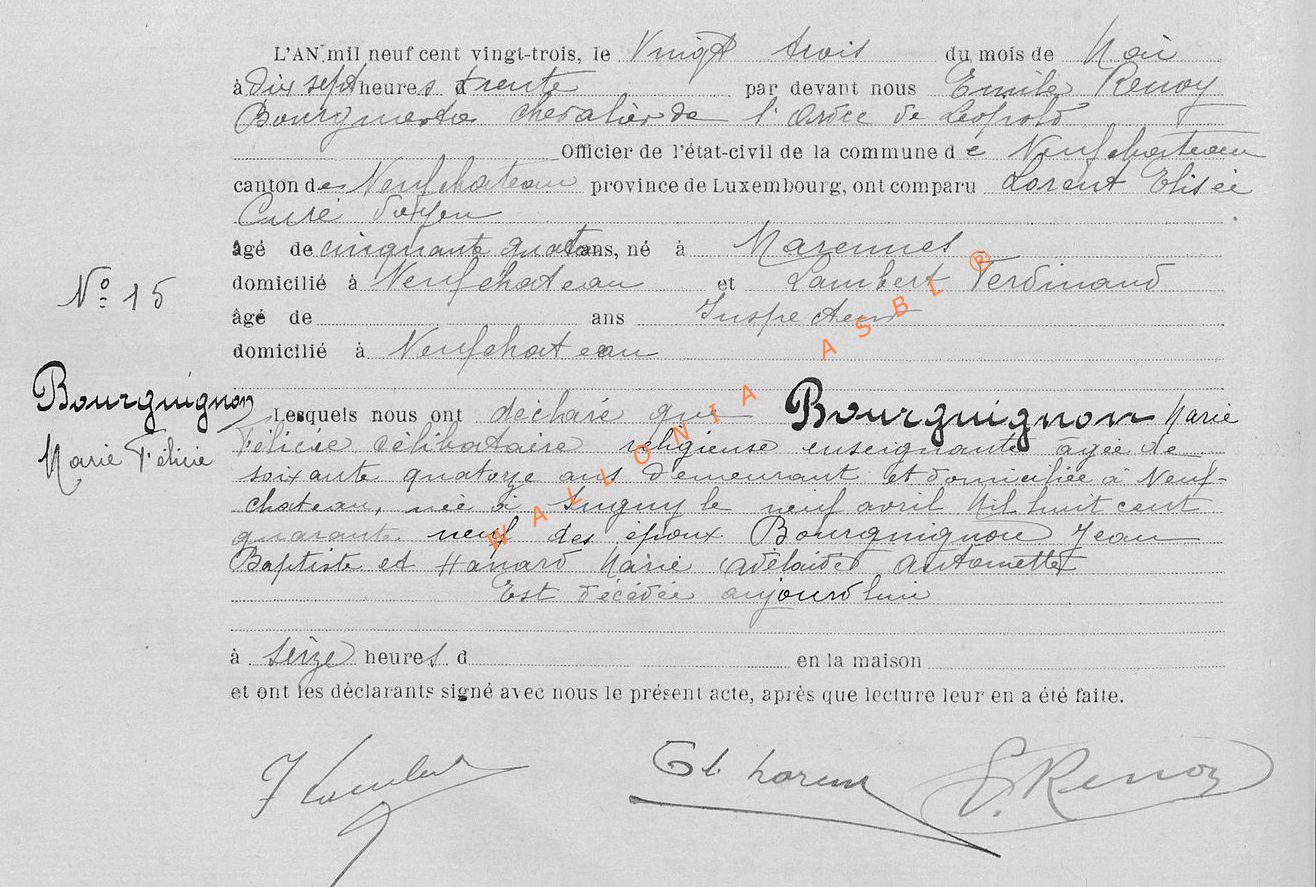 L'AN mil neuf cent vingt-trois, le Vingt trois du mois de Mai
à dix sept heures d trente par devant nous Emile Renoy
Bourgmestre chevalier de l'Ordre de Léopold
Officier de l'état-civil de la commune de Neufchateau
canton de Neufchateau province de Luxembourg, ont comparu Lorent Elisée
Curé doyen
âgé de cinquante quatre ans, né à Marennes
domicilié à Neufchateau et Lambert Ferdinand
N° 15
âgé de ans Inspecteur
domicilié à Neufchateau
Bourguignon
Marie Félicie
Lesquels nous ont déclaré que Bourguignon Marie
Félicie célibataire religieuse enseignante agée de
soixante quatorze ans demeurant et domiciliée à Neuf-
chateau, née à Sugny le neuf avril Mil huit cent
quarante neuf des époux Bourguignon Jean
Baptiste et Hanard Marie Adélaïde Antoinette
Est décédée aujourd'hui
à seize heures d en la maison
et ont les déclarants signé avec nous le présent acte, après que lecture leur en a été faite.
F Lambert El. Lorent E. Renoy
WALLONIA ASBL ®